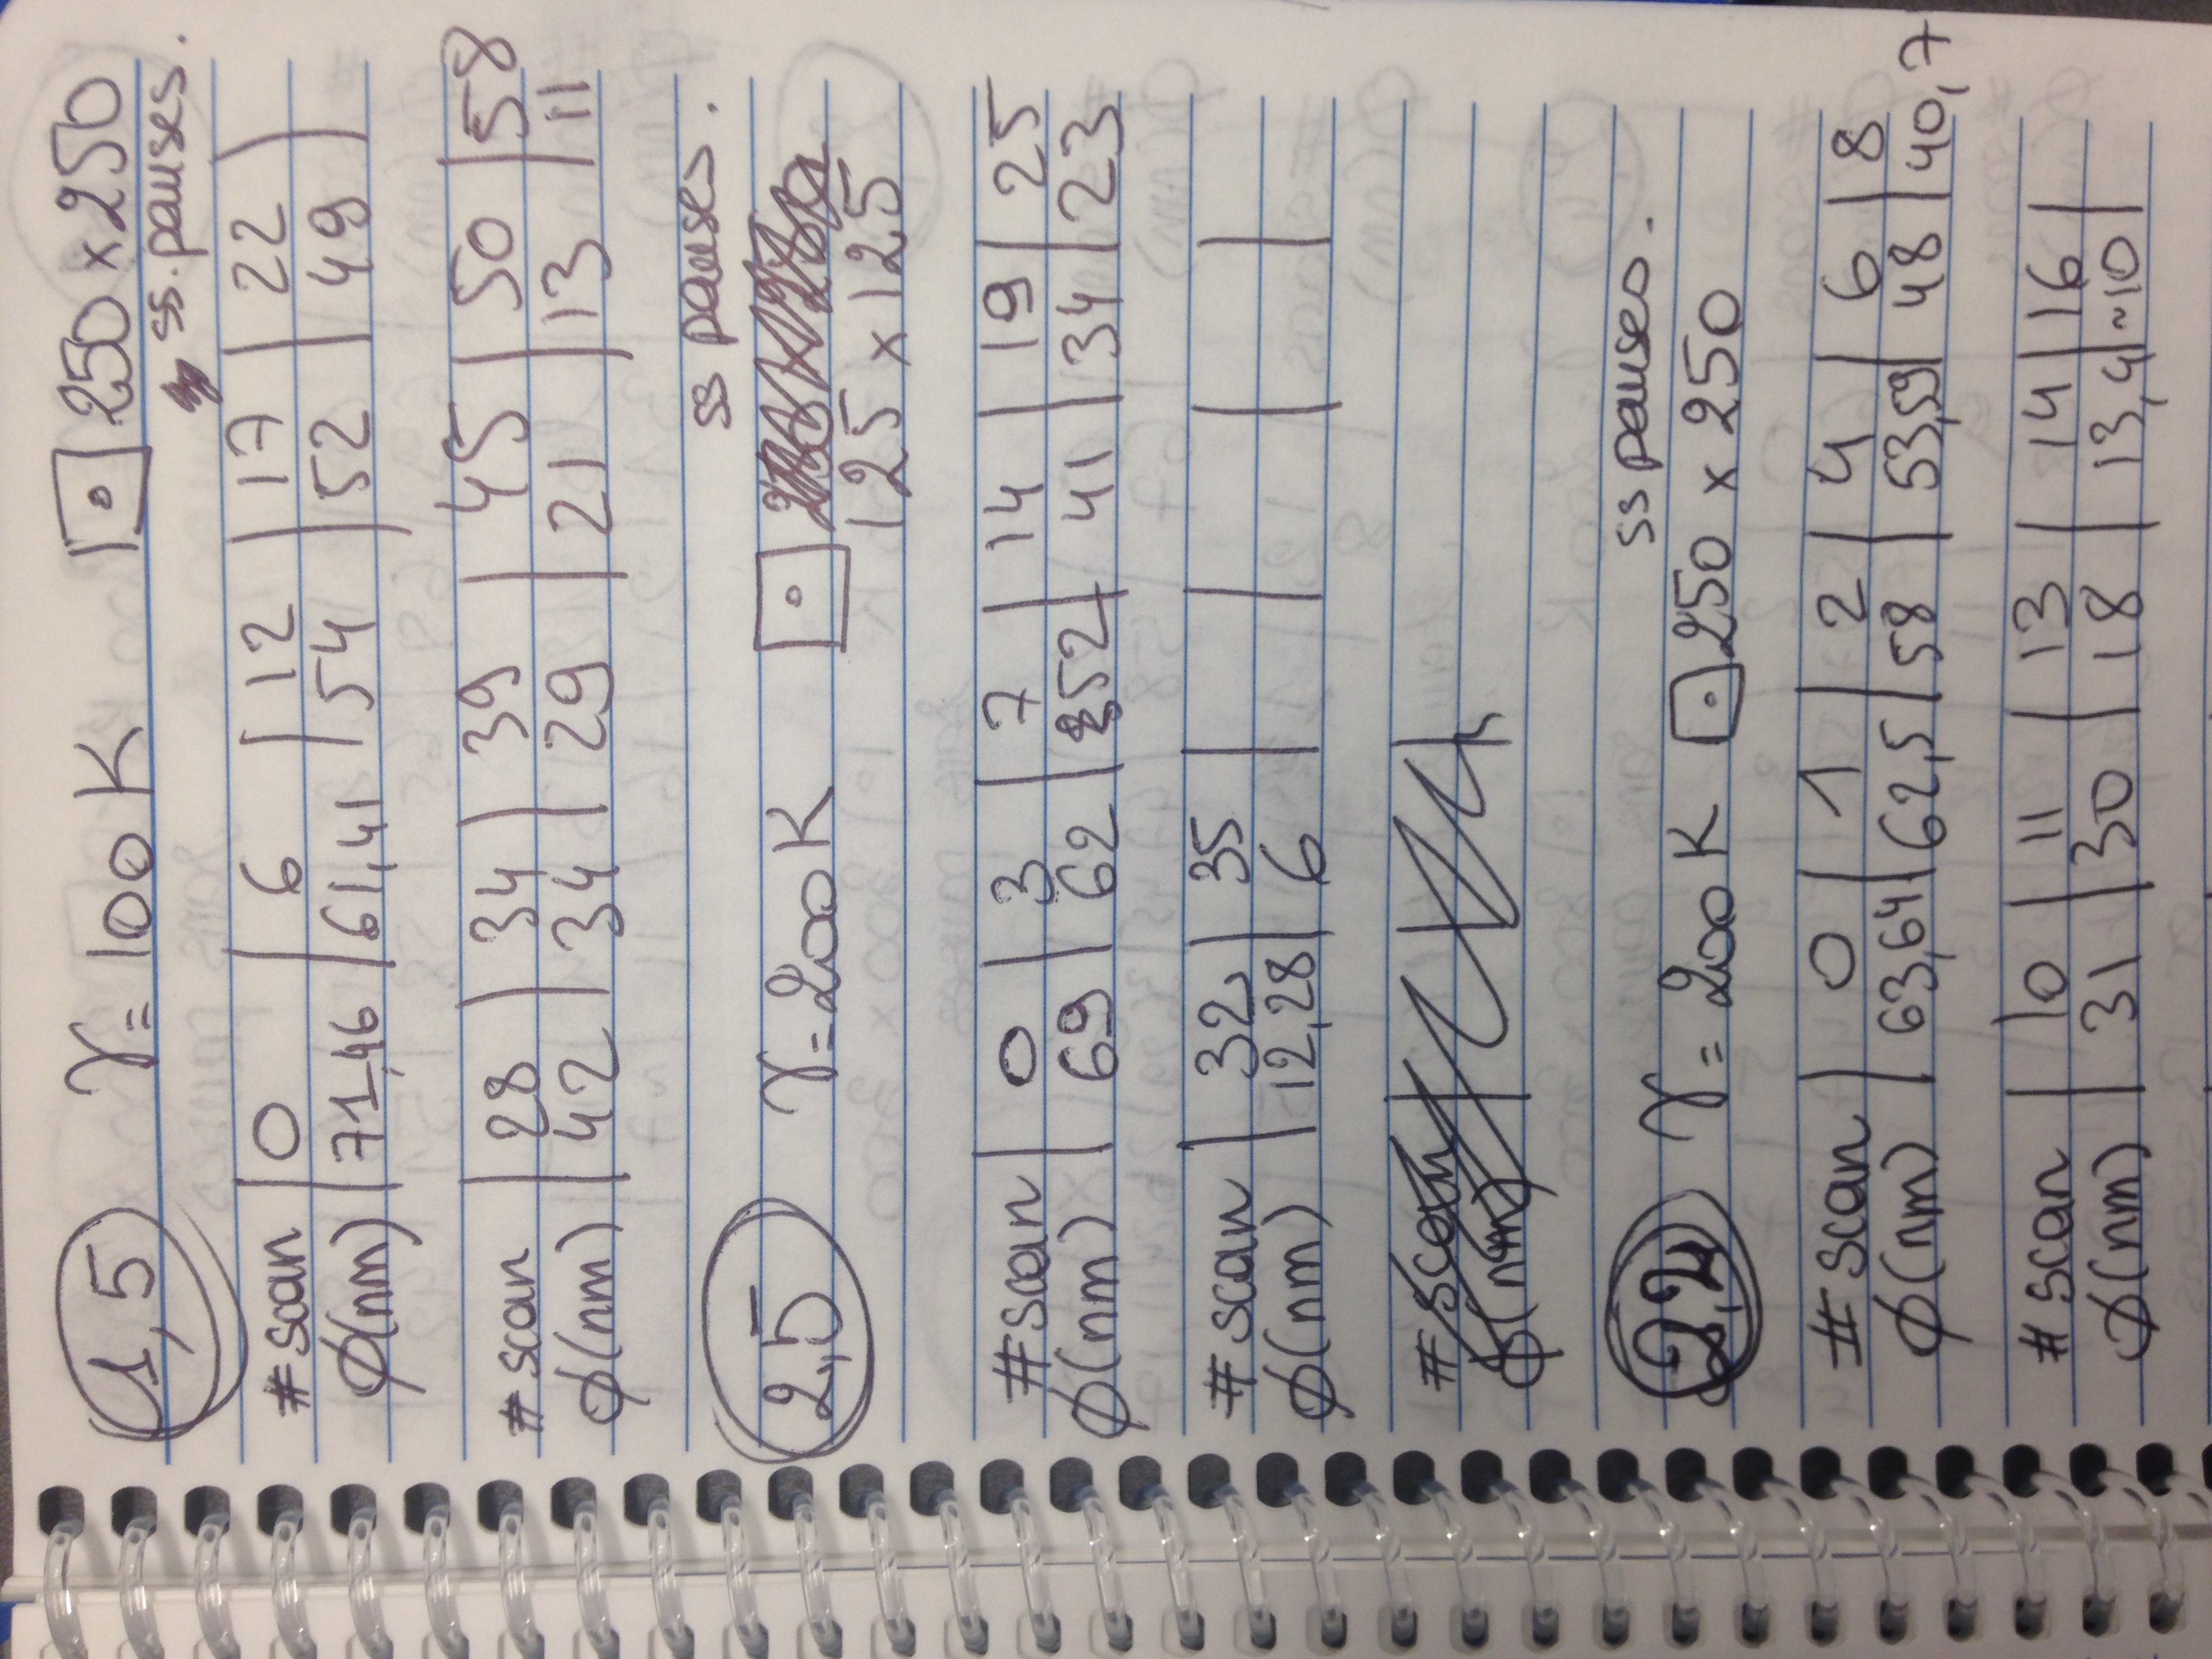 1,5 γ = 100 K 250 x 250
ss. pauses.
# scan | 0 | 6 | 12 | 17 | 22 |
ϕ(nm) | 71,46 | 61,41 | 54 | 52 | 49 |
# scan | 28 | 34 | 39 | 45 | 50 | 58
ϕ(nm) | 42 | 34 | 29 | 21 | 13 | 11
ss pauses.
2,5 γ = 200 K
125 x 125
# scan | 0 | 3 | 7 | 14 | 19 | 25
ϕ(nm) | 69 | 62 | 52 | 41 | 34 | 23
# scan | 32 | 35 | | | |
ϕ(nm) | 12,28 | 6 | | | |
# scan
ϕ(nm)
ss pauses.
2,2 γ = 200 K 250 x 250
# scan | 0 | 1 | 2 | 4 | 6 | 8
ϕ(nm) | 63,64 | 62,5 | 58 | 53,59 | 48 | 40,7
# scan | 10 | 11 | 13 | 14 | 16 |
ϕ(nm) | 31 | 30 | 18 | 13,4 | ~10 |